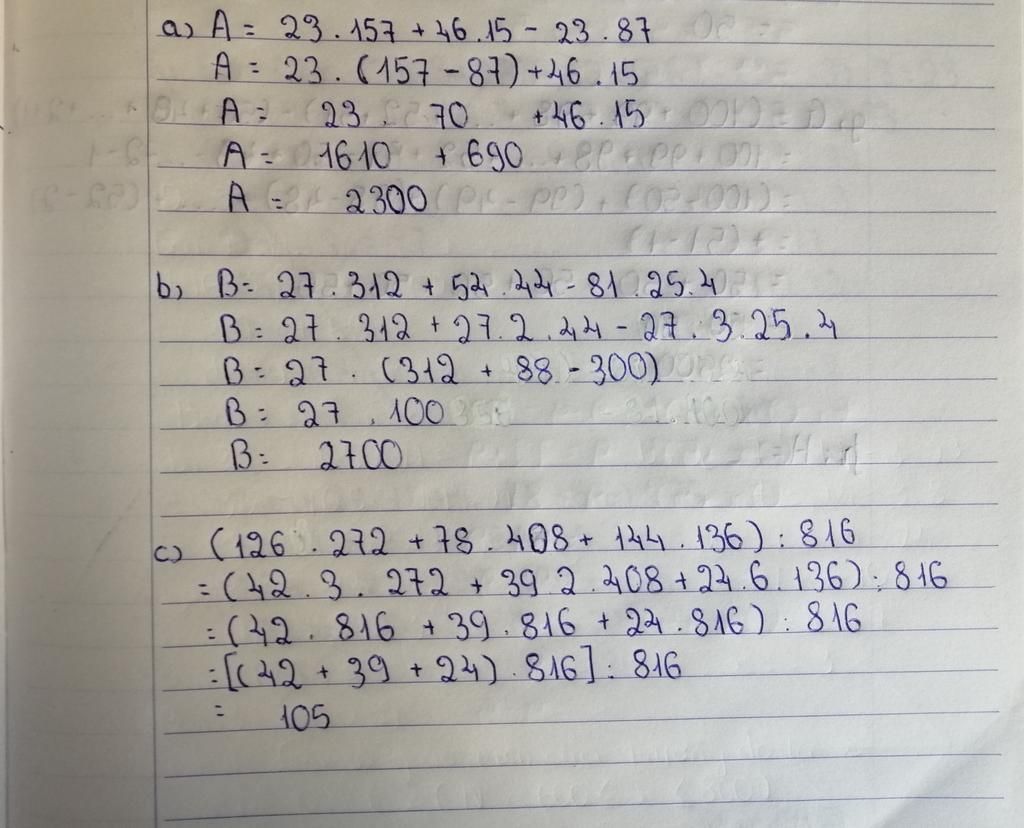 a) A = 23.157 + 46.15 - 23.87
A = 23.(157 - 87) + 46.15
A = 23. 70 + 46.15
A = 1610 + 690
A = 2300
b) B = 27.312 + 54.44 - 81.25.4
B = 27.312 + 27.2.44 - 27.3.25.4
B = 27.(312 + 88 - 300)
B = 27.100
B = 2700
c) (126.272 + 78.408 + 144.136) : 816
= (42.3.272 + 39.2.408 + 24.6.136) : 816
= (42.816 + 39.816 + 24.816) : 816
= [(42 + 39 + 24).816] : 816
= 105